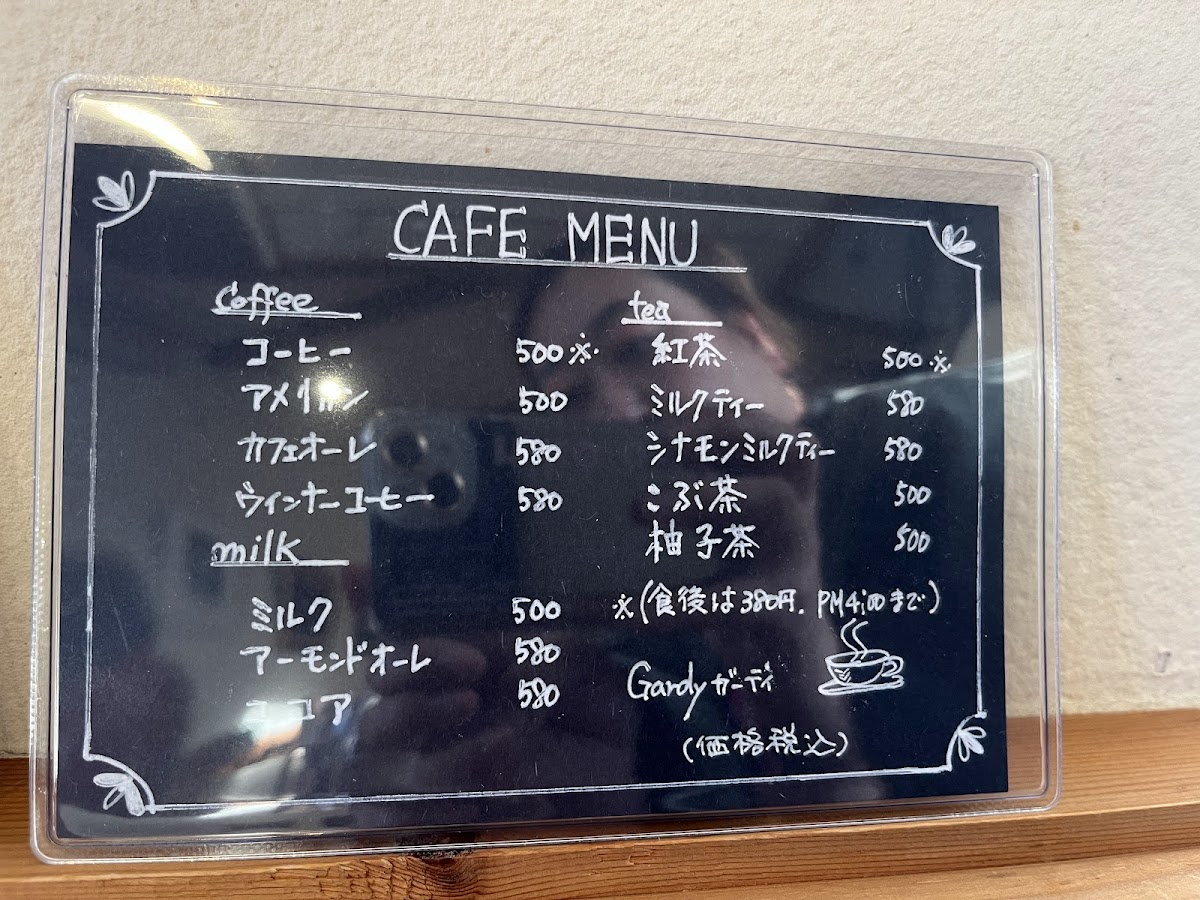 CAFE MENU
Coffee
コーヒー 500 ※
アメリカン 500
カフェオーレ 580
ウィンナーコーヒー 580
milk
ミルク 500
アーモンドオーレ 580
ココア 580
tea
紅茶 500 ※
ミルクティー 580
シナモンミルクティー 580
こぶ茶 500
柚子茶 500
※(食後は380円. PM4:00まで)
Gardy ガーディ
(価格税込)